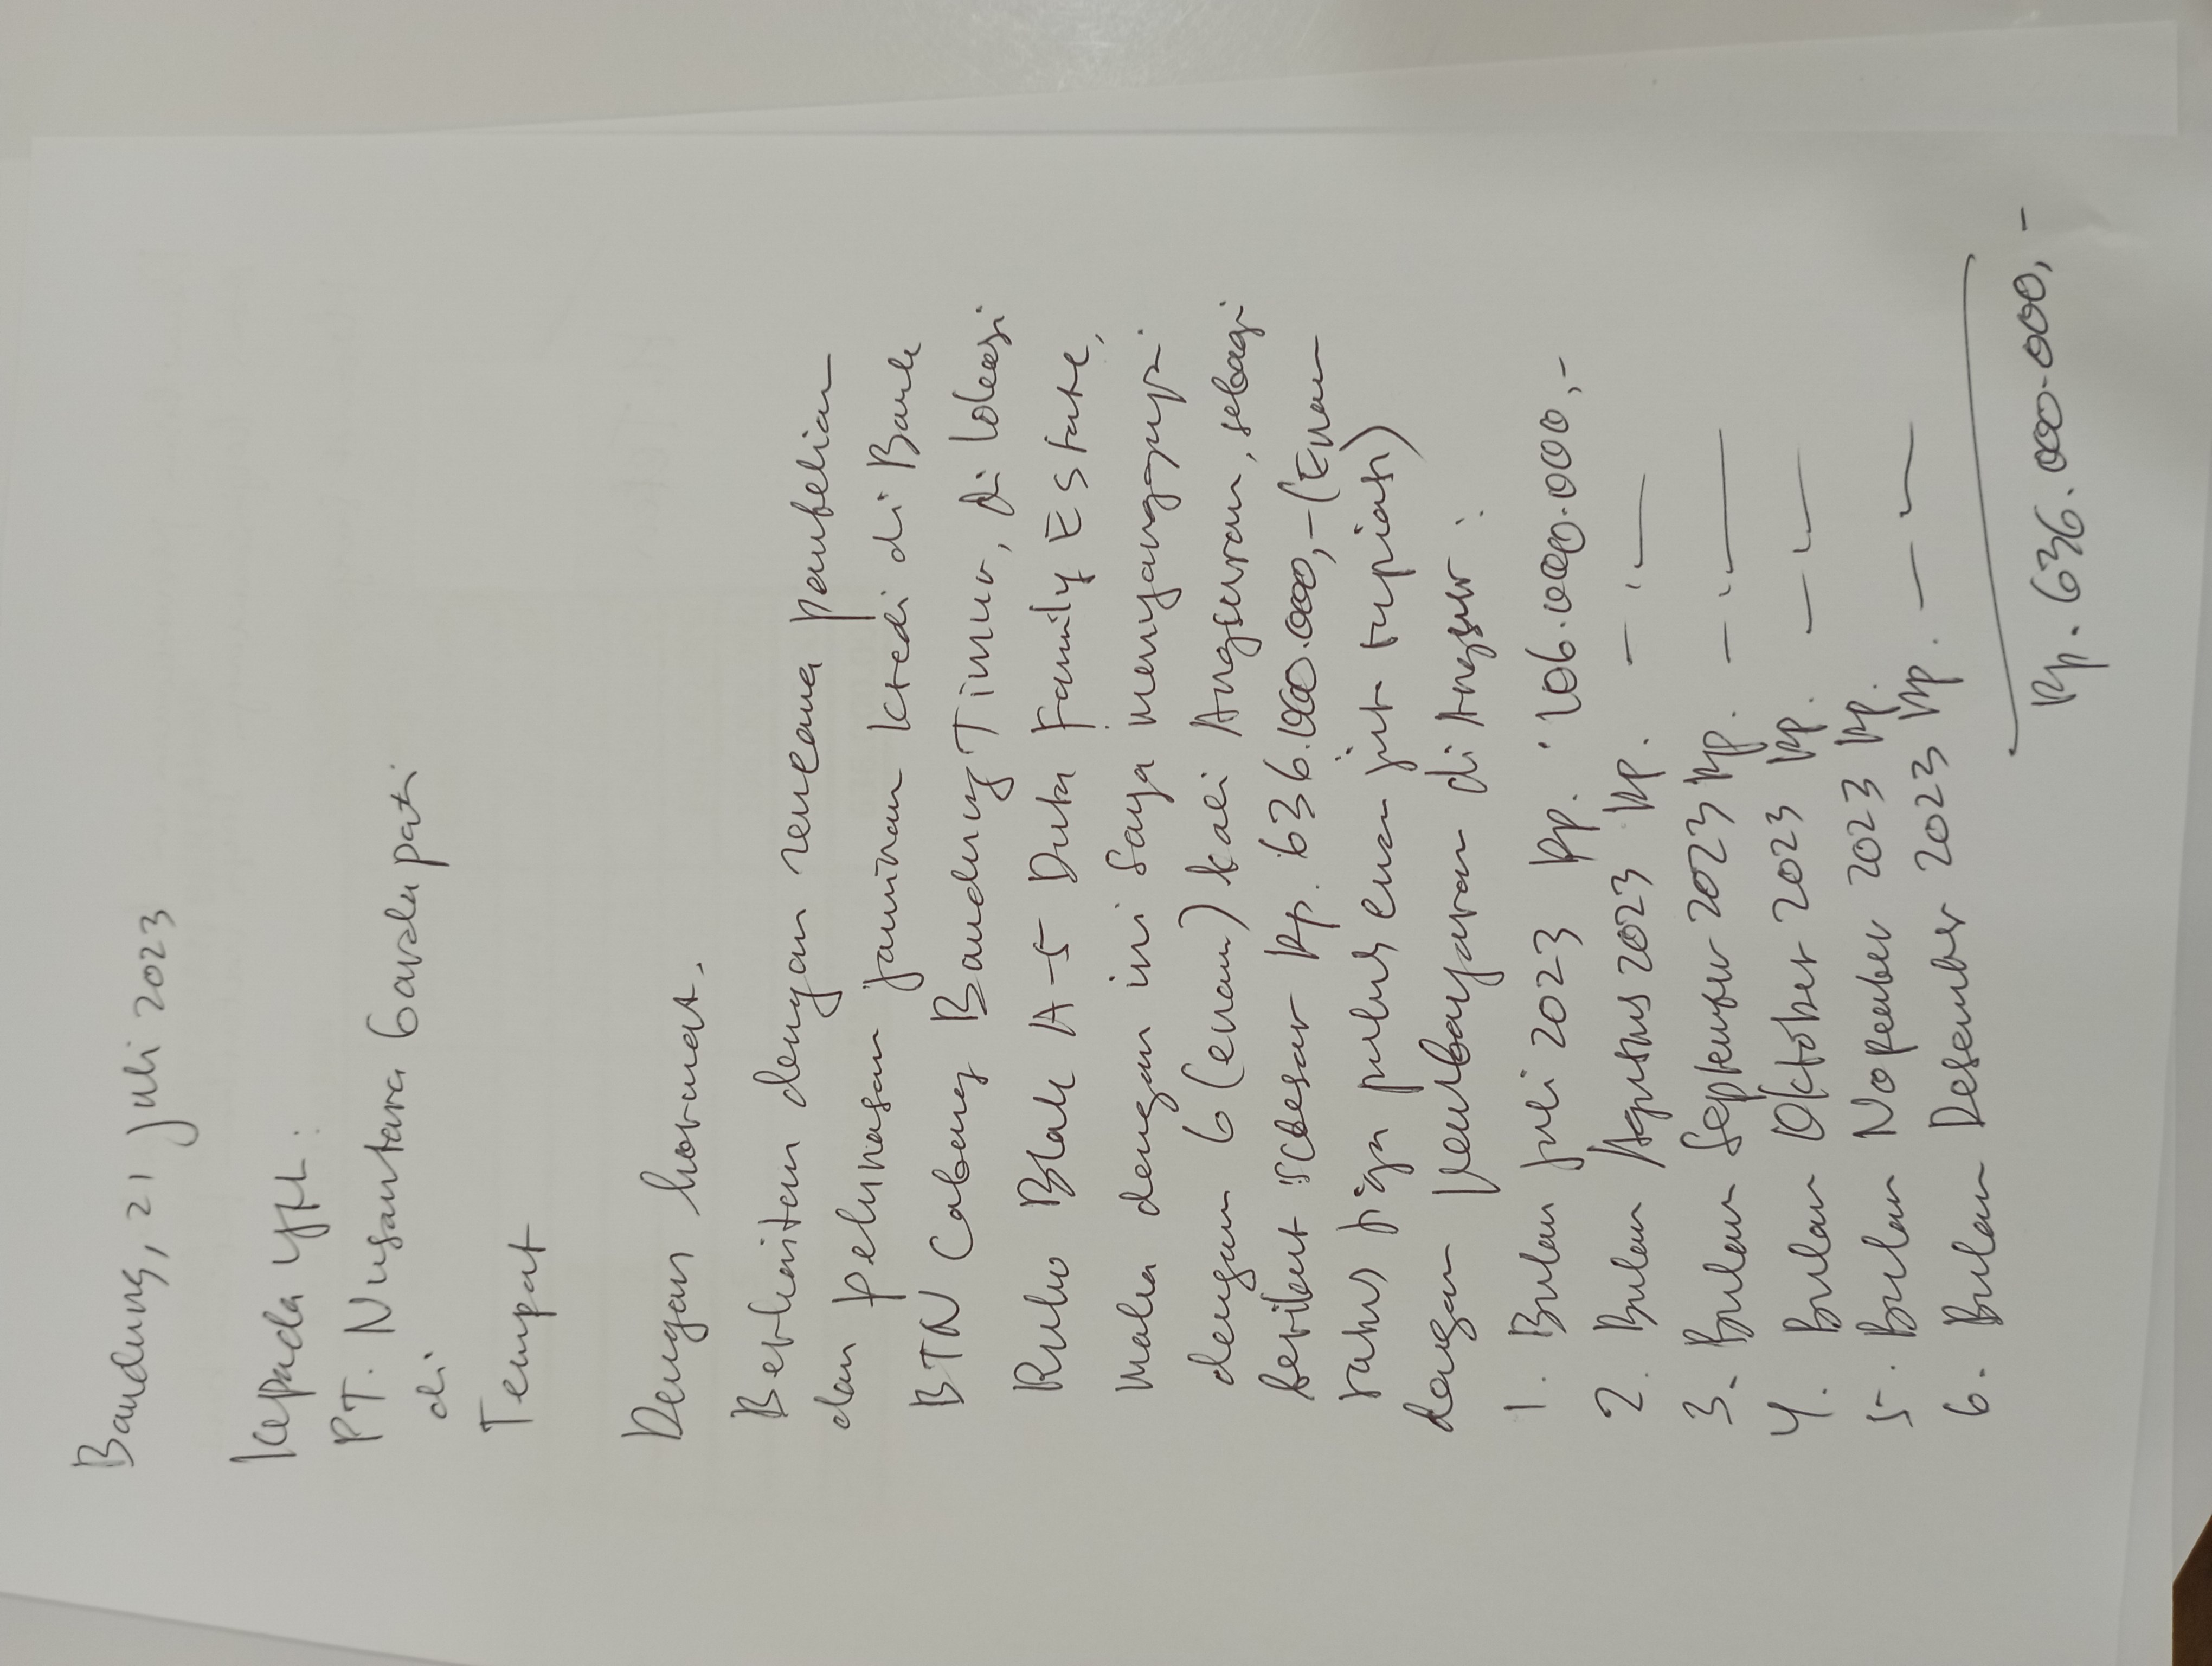 Bandung, 21 Juli 2023
Kepada Yth :
PT. Nusantara Garda pati
di
Tempat
Dengan hormat,
Berkaitan dengan rencana pembelian
dan pelunasan jaminan kredi di Bank
BTN Cabang Bandung Timur, di lokasi
Ruko Blok A-5 Duta Family Estate,
maka dengan ini saya menyanggupi
dengan 6 (enam) kali Angsuran, sebagi
berikut sebesar Rp. 636.000.000,- (Enam
ratus tiga puluh enam jut rupiah)
dengan pembayaran di Angsur :
1. Bulan Juli 2023 Rp. 106.000.000,-
2. Bulan Agustus 2023 Rp. - " -
3. Bulan September 2023 Rp. - " -
4. Bulan Oktober 2023 Rp. - " -
5. Bulan Nopember 2023 Rp. - " -
6. Bulan Desember 2023 Rp. - " -
Rp. 636.000.000,-